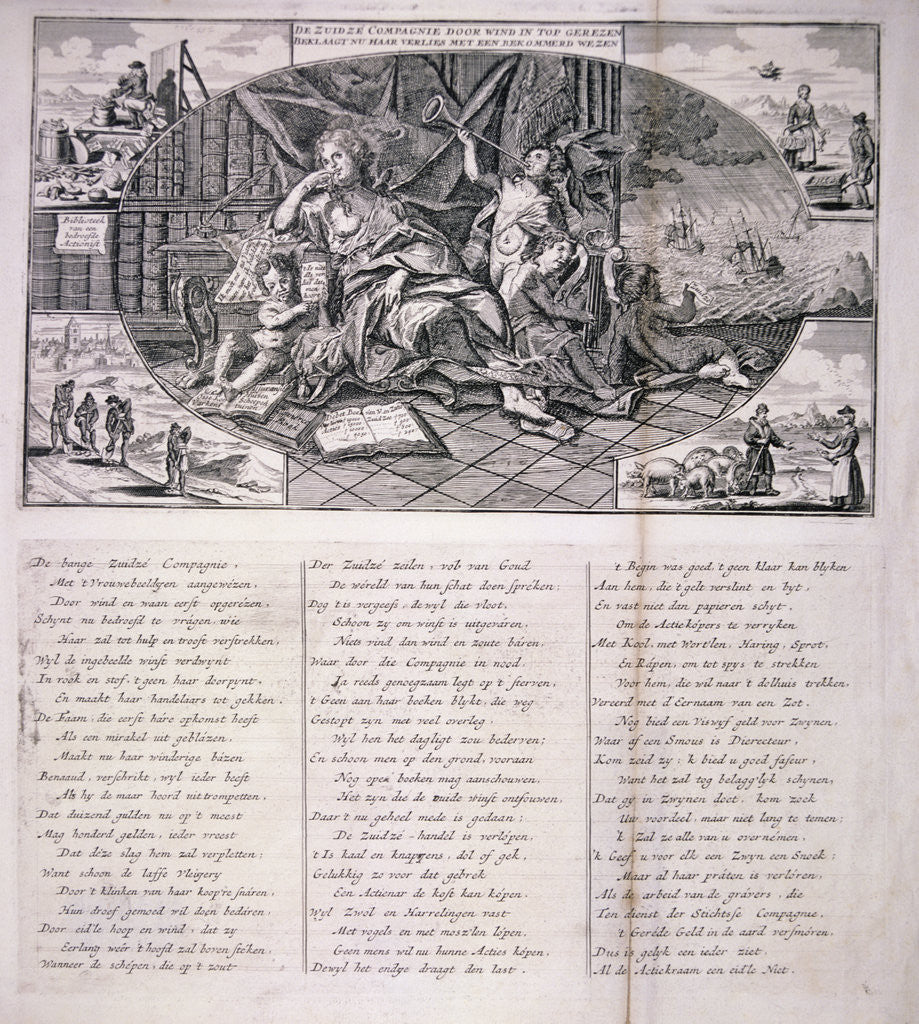 DE ZUIDZÉ COMPAGNIE DOOR WIND IN TOP GEREZEN
BEKLAAGT NU HAAR VERLIES MET EEN BEKOMMERD WEZEN
Biblioteek
van een
bedroefde
Actionist
De bange Zuidzé Compagnie,
Met 't Vrouwebeeldgen aangewézen,
Door wind en waan eerst opgerézen,
Schynt nu bedroefd te vrágen, wie
Haar zal tot hulp en troost verstrekken,
Wyl de ingebeelde winst verdwynt
In roók en stof, 't geen haar doorpynt,
En maakt haar handelaars tot gekken.
De Faam, die eerst háre opkomst heeft
Als een mirakel uit geblázen,
Maakt nu haar winderige bázen
Benaaud, verschrikt, wyl ieder beeft
Als hy de maar hoord uit trompetten,
Dat duizend gulden nu op 't meest
Mag honderd gelden, ieder vreest
Dat déze slag hem zal verpletten;
Want schoon de laffe Vleijery
Door 't klinken van haar koop're snáren,
Hun droef gemoed wil doen bedáren,
Door eid'le hoop en wind, dat zy
Eerlang weêr 't hoofd zal boven steken,
Wanneer de schépen, die op 't zout
Der Zuidzé zeilen, vol van Goud
De wéreld van hun schat doen spréken;
Dog 't is vergeefs, dewyl die vloot,
Schoon zy om winst is uitgeváren,
Niets vind dan wind en zoute báren,
Waar door die Compagnie in nood,
Ja reeds genoegzaam legt op 't sterven,
't Geen aan haar boeken blykt, die weg
Gestopt zyn met veel overleg,
Wyl hen het dagligt zou bederven;
En schoon men op den grond, vooraan
Nog open boeken mag aanschouwen,
Het zyn die de zuide winst ontfouwen,
Daar 't nu geheel mede is gedaan;
De Zuidzé-handel is verlópen,
't Is kaal en knappens, dol of gek,
Gelukkig zo voor dat gebrek
Een Actionar de kost kan kópen,
Wyl Zwol en Harrelingen vast
Met vogels en met mosz'len lópen,
Geen mens wil nu hunne Acties kópen,
Dewyl het endje draagt den last.
't Begin was goed, 't geen klaar kan blyken
Aan hem, die 't gelt verslint en byt,
En vast niet dan papieren schyt,
Om de Actiekópers te verryken
Met Kool, met Wort'len, Haring, Sprot,
En Rápen, om tot spys te strekken
Voor hem, die wil naar 't dolhuis trekken,
Vereerd met d'Eernaam van een Zot.
Nog bied een Viswyf geld voor Zwynen,
Waar af een Smous is Dierecteur,
Kom zeid zy; 'k bied u goed faseur,
Want het zal tog belagg'lyk schynen,
Dat gy in Zwynen doet, kom zoek
Uw voordeel, maar niet lang te temen;
'k Zal ze alle van u overnemen,
'k Geef u voor elk een Zwyn een Snoek;
Maar al haar práten is verlóren,
Als de arbeid van de grávers, die
Ten dienst der Stichtse Compagnie,
't Geréde Geld in de aard versmóren,
Dus is gelyk een ieder ziet,
Al de Actiekraam een eid'le Niet.